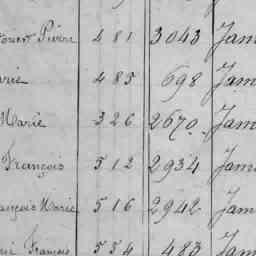 Pierre 4 8 1 3043 Jam
arie 4 8 5 698 Jam
Marie 3 2 6 2670. Jam
François 5 1 2 2934 Jam
ançois Marie 5 1 6 2942 Jam
rie François 5 5 4 483 Jam